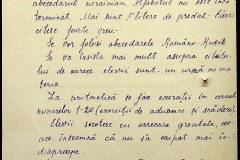 abecedarul ucrainian. Alfabetul nu este încă
terminat. Mai sunt 7 litere de predat. Elevii
citesc foarte greu.
Se vor folosi abecedarele Româno-Rusești
Se va insista mai mult asupra cititului
de oarece elevii sunt în urmă cu ma
teria.
La aritmetică se fac exerciții în cursul
numerelor 1-20 (exerciții de adunare și scădere).
Elevii socotesc cu oarecare greutate, ceea
ce înseamnă că nu s'a ocupat mai în
deaproape.